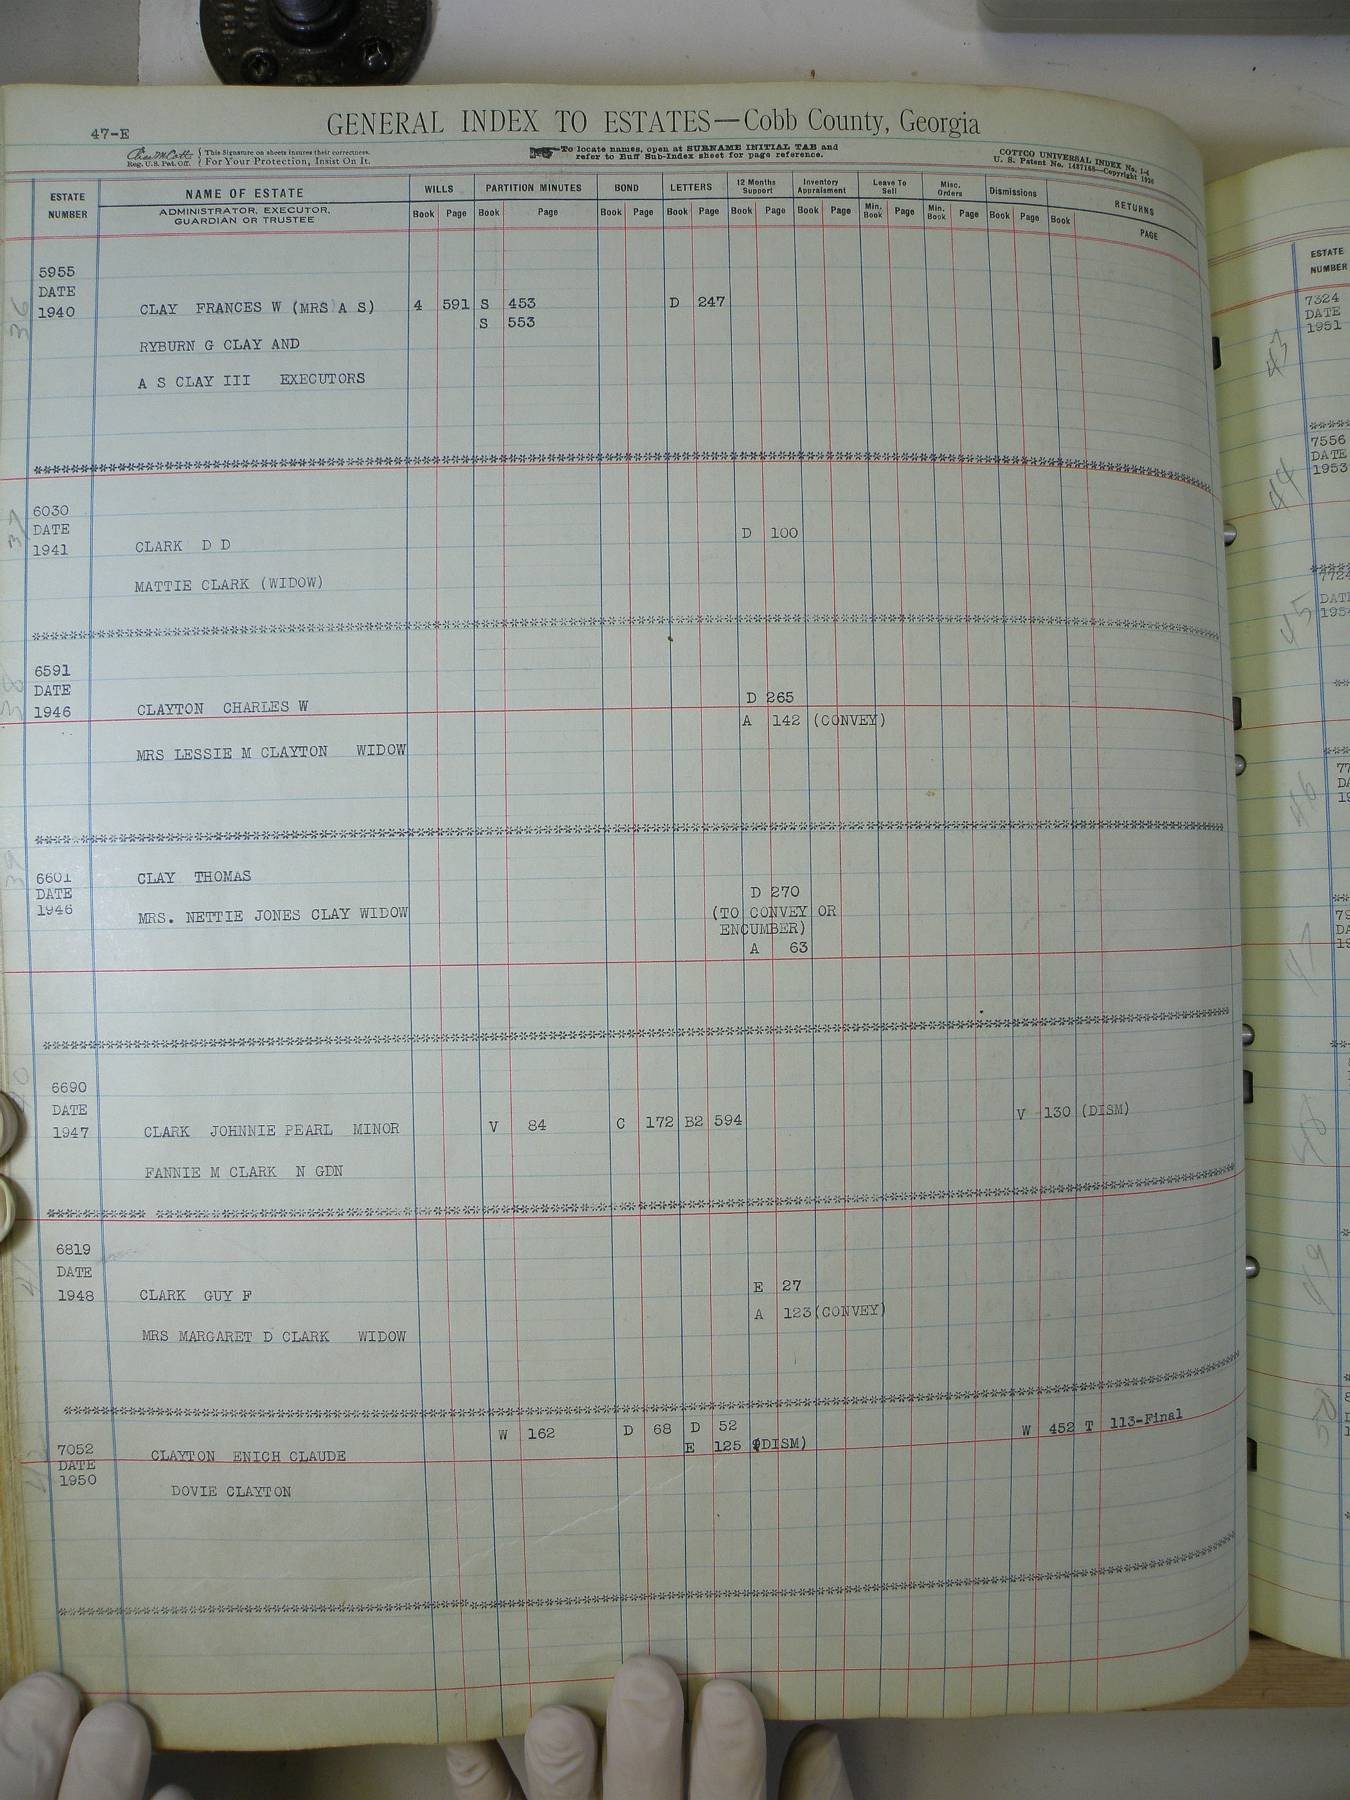 47-E
GENERAL INDEX TO ESTATES—Cobb County, Georgia
Reg. U.S. Pat. Off.
This Signature on sheets insures their correctness.
For Your Protection, Insist On It.
To locate names, open at SURNAME INITIAL TAB and
refer to Buff Sub-Index sheet for page reference.
COTTCO UNIVERSAL INDEX No. 1-4
U. S. Patent No. 1437168—Copyright
ESTATE NUMBER
NAME OF ESTATE
ADMINISTRATOR, EXECUTOR,
GUARDIAN OR TRUSTEE
WILLS PARTITION MINUTES BOND LETTERS 12 Months Support Inventory Appraisment Leave To Sell Misc. Orders Dismissions RETURNS
Book Page Book Page Book Page Book Page Book Page Book Page Min. Book Page Min. Book Page Book Page Book PAGE
36
5955
DATE
1940 CLAY FRANCES W (MRS A S) 4 591 S 453 D 247
S 553
RYBURN G CLAY AND
A S CLAY III EXECUTORS
37
6030
DATE
1941 CLARK D D D 100
MATTIE CLARK (WIDOW)
38
6591
DATE
1946 CLAYTON CHARLES W D 265
A 142 (CONVEY)
MRS LESSIE M CLAYTON WIDOW
39
6601 CLAY THOMAS
DATE D 270
1946 MRS. NETTIE JONES CLAY WIDOW (TO CONVEY OR
ENCUMBER)
A 63
40
6690
DATE
1947 CLARK JOHNNIE PEARL MINOR V 84 C 172 B2 594 V 130 (DISM)
FANNIE M CLARK N GDN
41
6819
DATE
1948 CLARK GUY F E 27
A 123(CONVEY)
MRS MARGARET D CLARK WIDOW
W 162 D 68 D 52 W 452 T 113-Final
7052 CLAYTON ENICH CLAUDE E 125 (DISM)
DATE
1950 DOVIE CLAYTON
ESTATE
NUMBER
7324
DATE
1951
43
7556
DATE
1953
44
7724
DATE
45
46
47
48
49
50